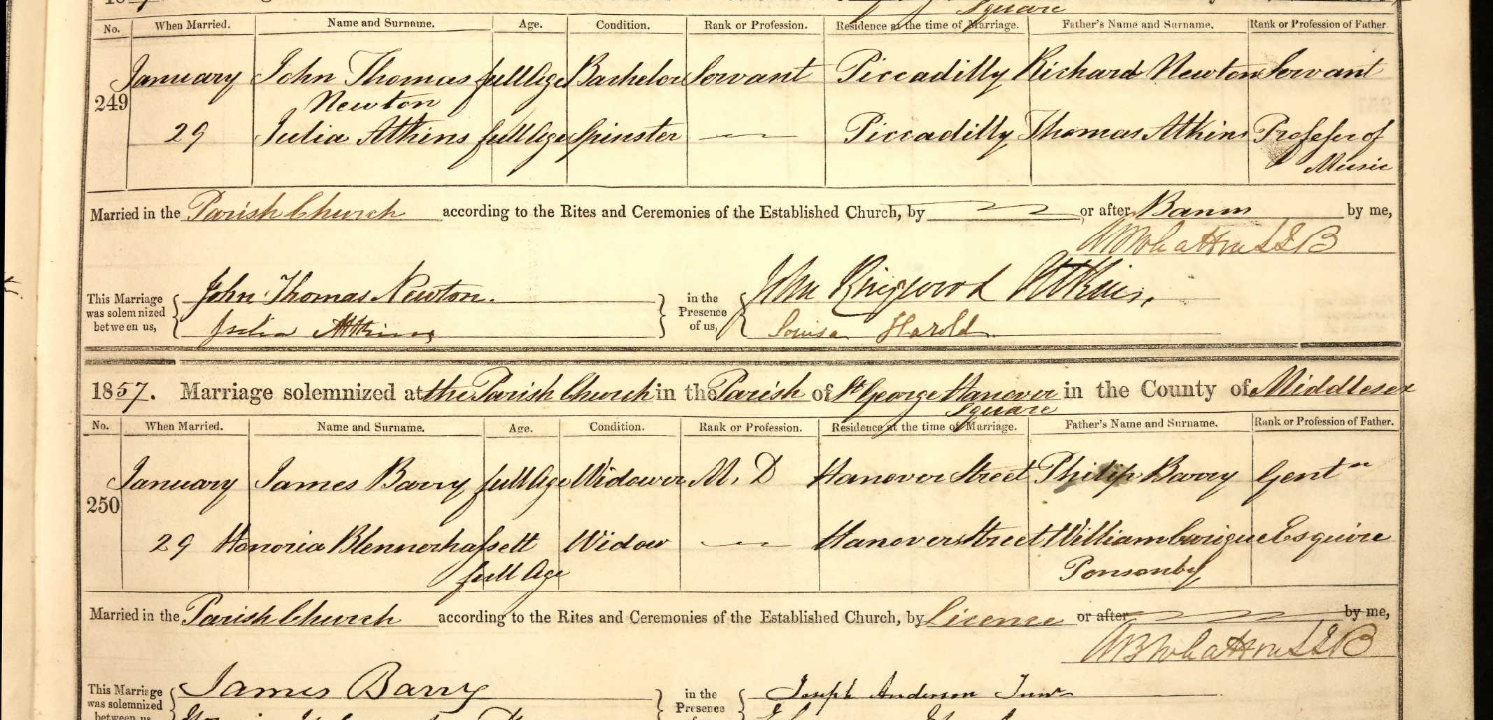 Square
No. When Married. Name and Surname. Age. Condition. Rank or Profession. Residence at the time of Marriage. Father's Name and Surname. Rank or Profession of Father.
249 January John Thomas full Age Bachelor Servant Piccadilly Richard Newton Servant
Newton
29 Julia Atkins full Age Spinster — Piccadilly Thomas Atkins Professor of
Music
Married in the Parish Church according to the Rites and Ceremonies of the Established Church, by or after Banns by me,
This Marriage was solemnized between us, John Thomas Newton. in the Presence of us, John Ringwood Atkins.
Julia Atkins Louisa Harold
1857. Marriage solemnized at the Parish Church in the Parish of St George Hanover in the County of Middlesex
Square
No. When Married. Name and Surname. Age. Condition. Rank or Profession. Residence at the time of Marriage. Father's Name and Surname. Rank or Profession of Father.
250 January James Barry full Age Widower M. D Hanover Street Philip Barry Gentn
29 Honoria Blennerhassett Widow — Hanover Street William Esquire
full Age Ponsonby
Married in the Parish Church according to the Rites and Ceremonies of the Established Church, by Licence or after by me,
This Marriage was solemnized between us, James Barry in the Presence of Joseph Anderson Junr